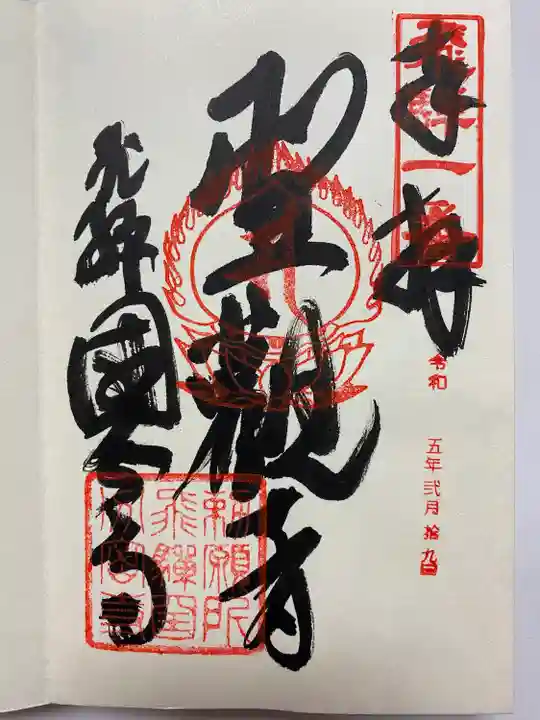 奉拝
令和 五年 弐月 拾九日
聖観音
飛騨國分寺
勅願所